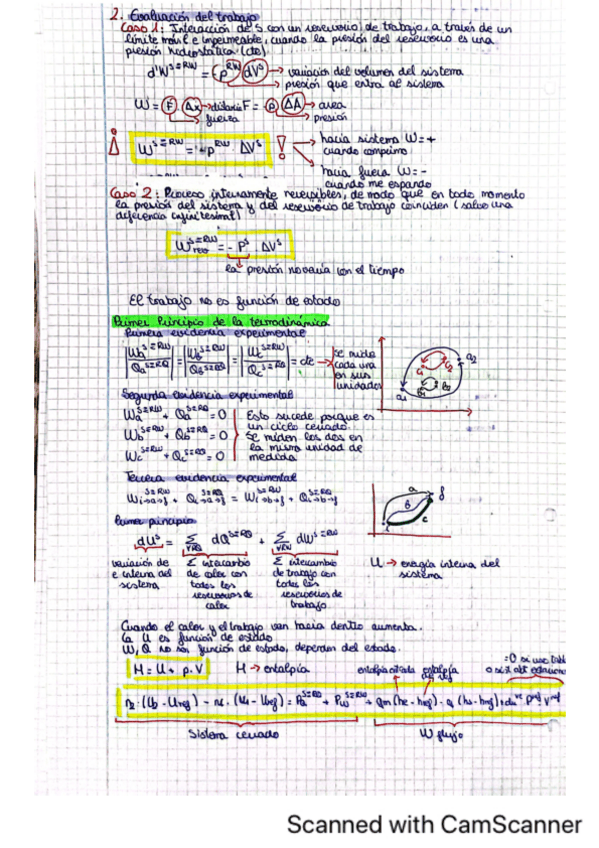 2. Evaluación del trabajo
Caso 1: Interacción de S con un reservorio de trabajo, a través de un
límite móvil e impermeable, cuando la presión del reservorio es una
presión hidrostática (cte)
d'W^S⇄RW = (-p^RW dV^S) → variación del volumen del sistema
→ presión que entra al sistema
W = F · Δx → distancia F = p · ΔA → area
fuerza presión
W^S⇄RW = -p^RW ΔV^S ! → hacia sistema W = +
cuando comprimo
hacia fuera W = -
cuando me expando
Caso 2: Proceso internamente reversibles, de modo que en todo momento
la presión del sistema y del reservorio de trabajo coinciden (salvo una
diferencia infinitesimal)
W rev^S⇄RW = - P^S · ΔV^S
la presión no varía con el tiempo
El trabajo no es función de estado
Primer Principio de la termodinámica
Primera evidencia experimental
|Wa^S⇄RW / Qa^S⇄RQ| = |Wb^S⇄RW / Qb^S⇄RQ| = |Wc^S⇄RW / Qc^S⇄RQ| = cte → se mide
cada una
en sus
unidades
Segunda evidencia experimental
Wa^S⇄RW + Qa^S⇄RQ = 0
Wb^S⇄RW + Qb^S⇄RQ = 0
Wc^S⇄RW + Qc^S⇄RQ = 0
Esto sucede porque es
un ciclo cerrado.
Se miden los dos en
la misma unidad de
medida
Tercera evidencia experimental
Wi→a→f^S⇄RW + Qi→a→f^S⇄RQ = Wi→b→f^S⇄RW + Qi→b→f^S⇄RQ
a
b
c
f
Primer principio
dU^S = Σ∀RQ dQ^S⇄RQ + Σ∀RW dW^S⇄RW
variación de
e interna del
sistema
Σ intercambio
de calor con
todos los
reservorios de
calor
Σ intercambio
de trabajo con
todos los
reservorios de
trabajo
U → energía interna del
sistema
Cuando el calor y el trabajo van hacia dentro aumenta.
la U es función de estado
W, Q no son función de estado, dependen del estado.
H = U + p·V H → entalpía
entalpía
Sistema cerrado
W flujo
Scanned with CamScanner